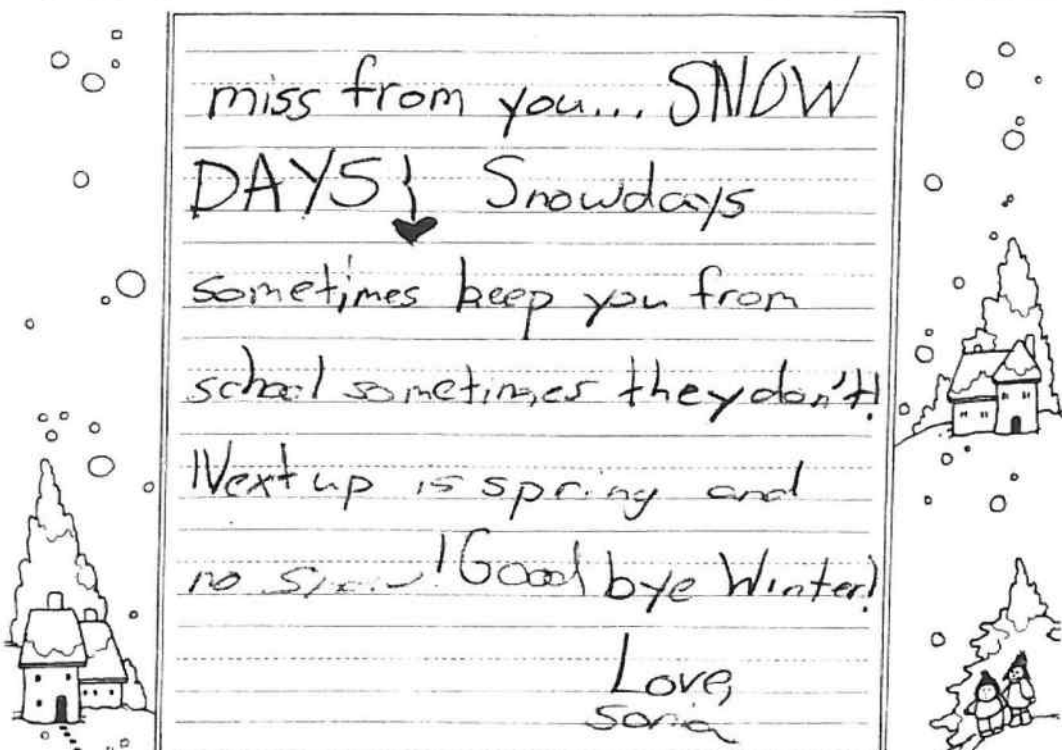 miss from you... SNOW
DAYS! Snowdays
sometimes keep you from
school sometimes they don't!
Next up is spring and
no snow! Good bye Winter!
Love,
Sonia